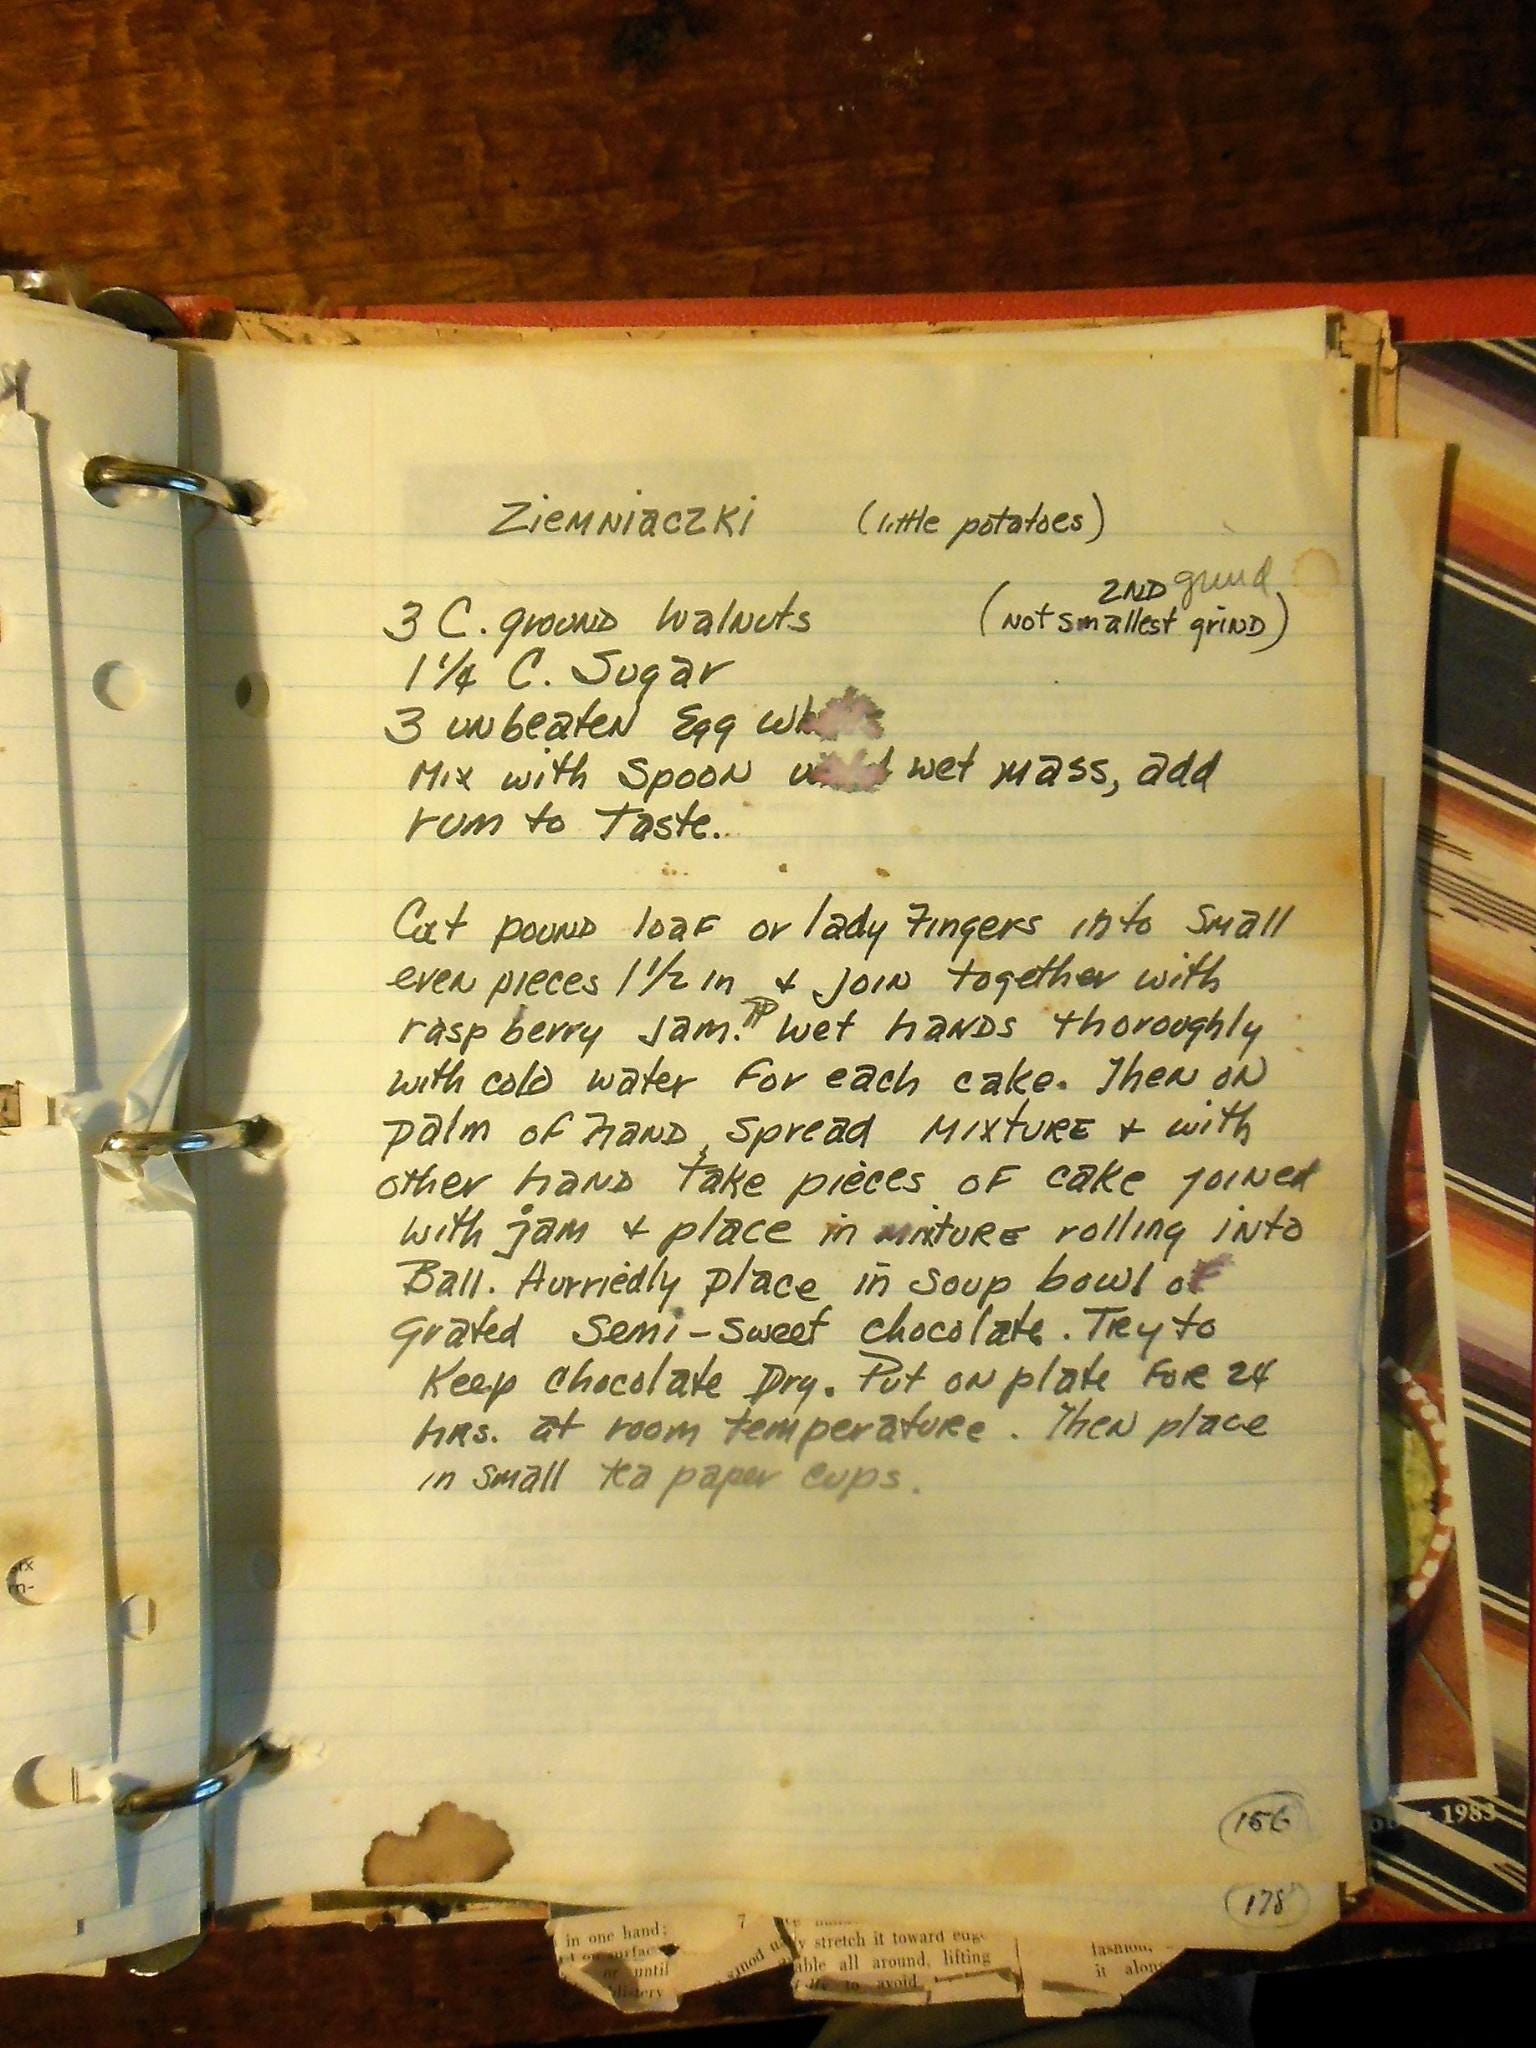 Ziemniaczki (little potatoes)
2ND grind
3 C. ground walnuts (not smallest grind)
1 1/4 C. Sugar
3 unbeaten Egg whites
Mix with spoon until wet mass, add
rum to Taste.
Cut pound loaf or lady fingers into small
even pieces 1 1/2 in & join together with
raspberry jam. Wet hands thoroughly
with cold water for each cake. Then on
palm of hand, spread mixture & with
other hand take pieces of cake joined
with jam & place in mixture rolling into
Ball. Hurriedly place in soup bowl of
grated semi-sweet chocolate. Try to
Keep chocolate Dry. Put on plate for 24
hrs. at room temperature. Then place
in small tea paper cups.
156
1983
178
in one hand; 7
stretch it toward
or until all around, lifting
to avoid
fashion,